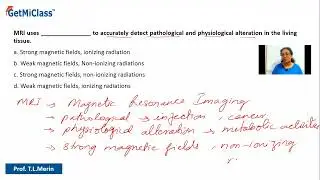 GetMiClass™
MRI uses ________________ to accurately detect pathological and physiological alteration in the living
tissue.
a. Strong magnetic fields, ionizing radiation
b. Weak magnetic fields, Non-ionizing radiations
c. Strong magnetic fields, non-ionizing radiations
d. Weak magnetic fields, ionizing radiations
MRI → Magnetic Resonance Imaging
→ pathological → injection, cancer
→ physiological alteration → metabolic activities
→ strong magnetic fields, non-ionizing
r.
Prof. T.L.Merin